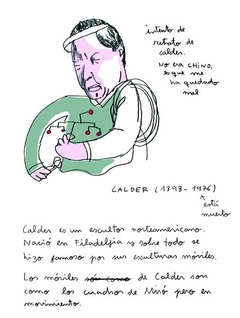 intento de
retrato de
calder.
NO ERA CHINO,
es que me
ha quedado
mal
CALDER (1898 - 1976)
está
muerto
Calder es un escultor norteamericano.
Nació en Filadelfia y sobre todo se
hizo famoso por sus esculturas móviles.
Los móviles son como de Calder son
como los cuadros de Miró pero en
movimiento.